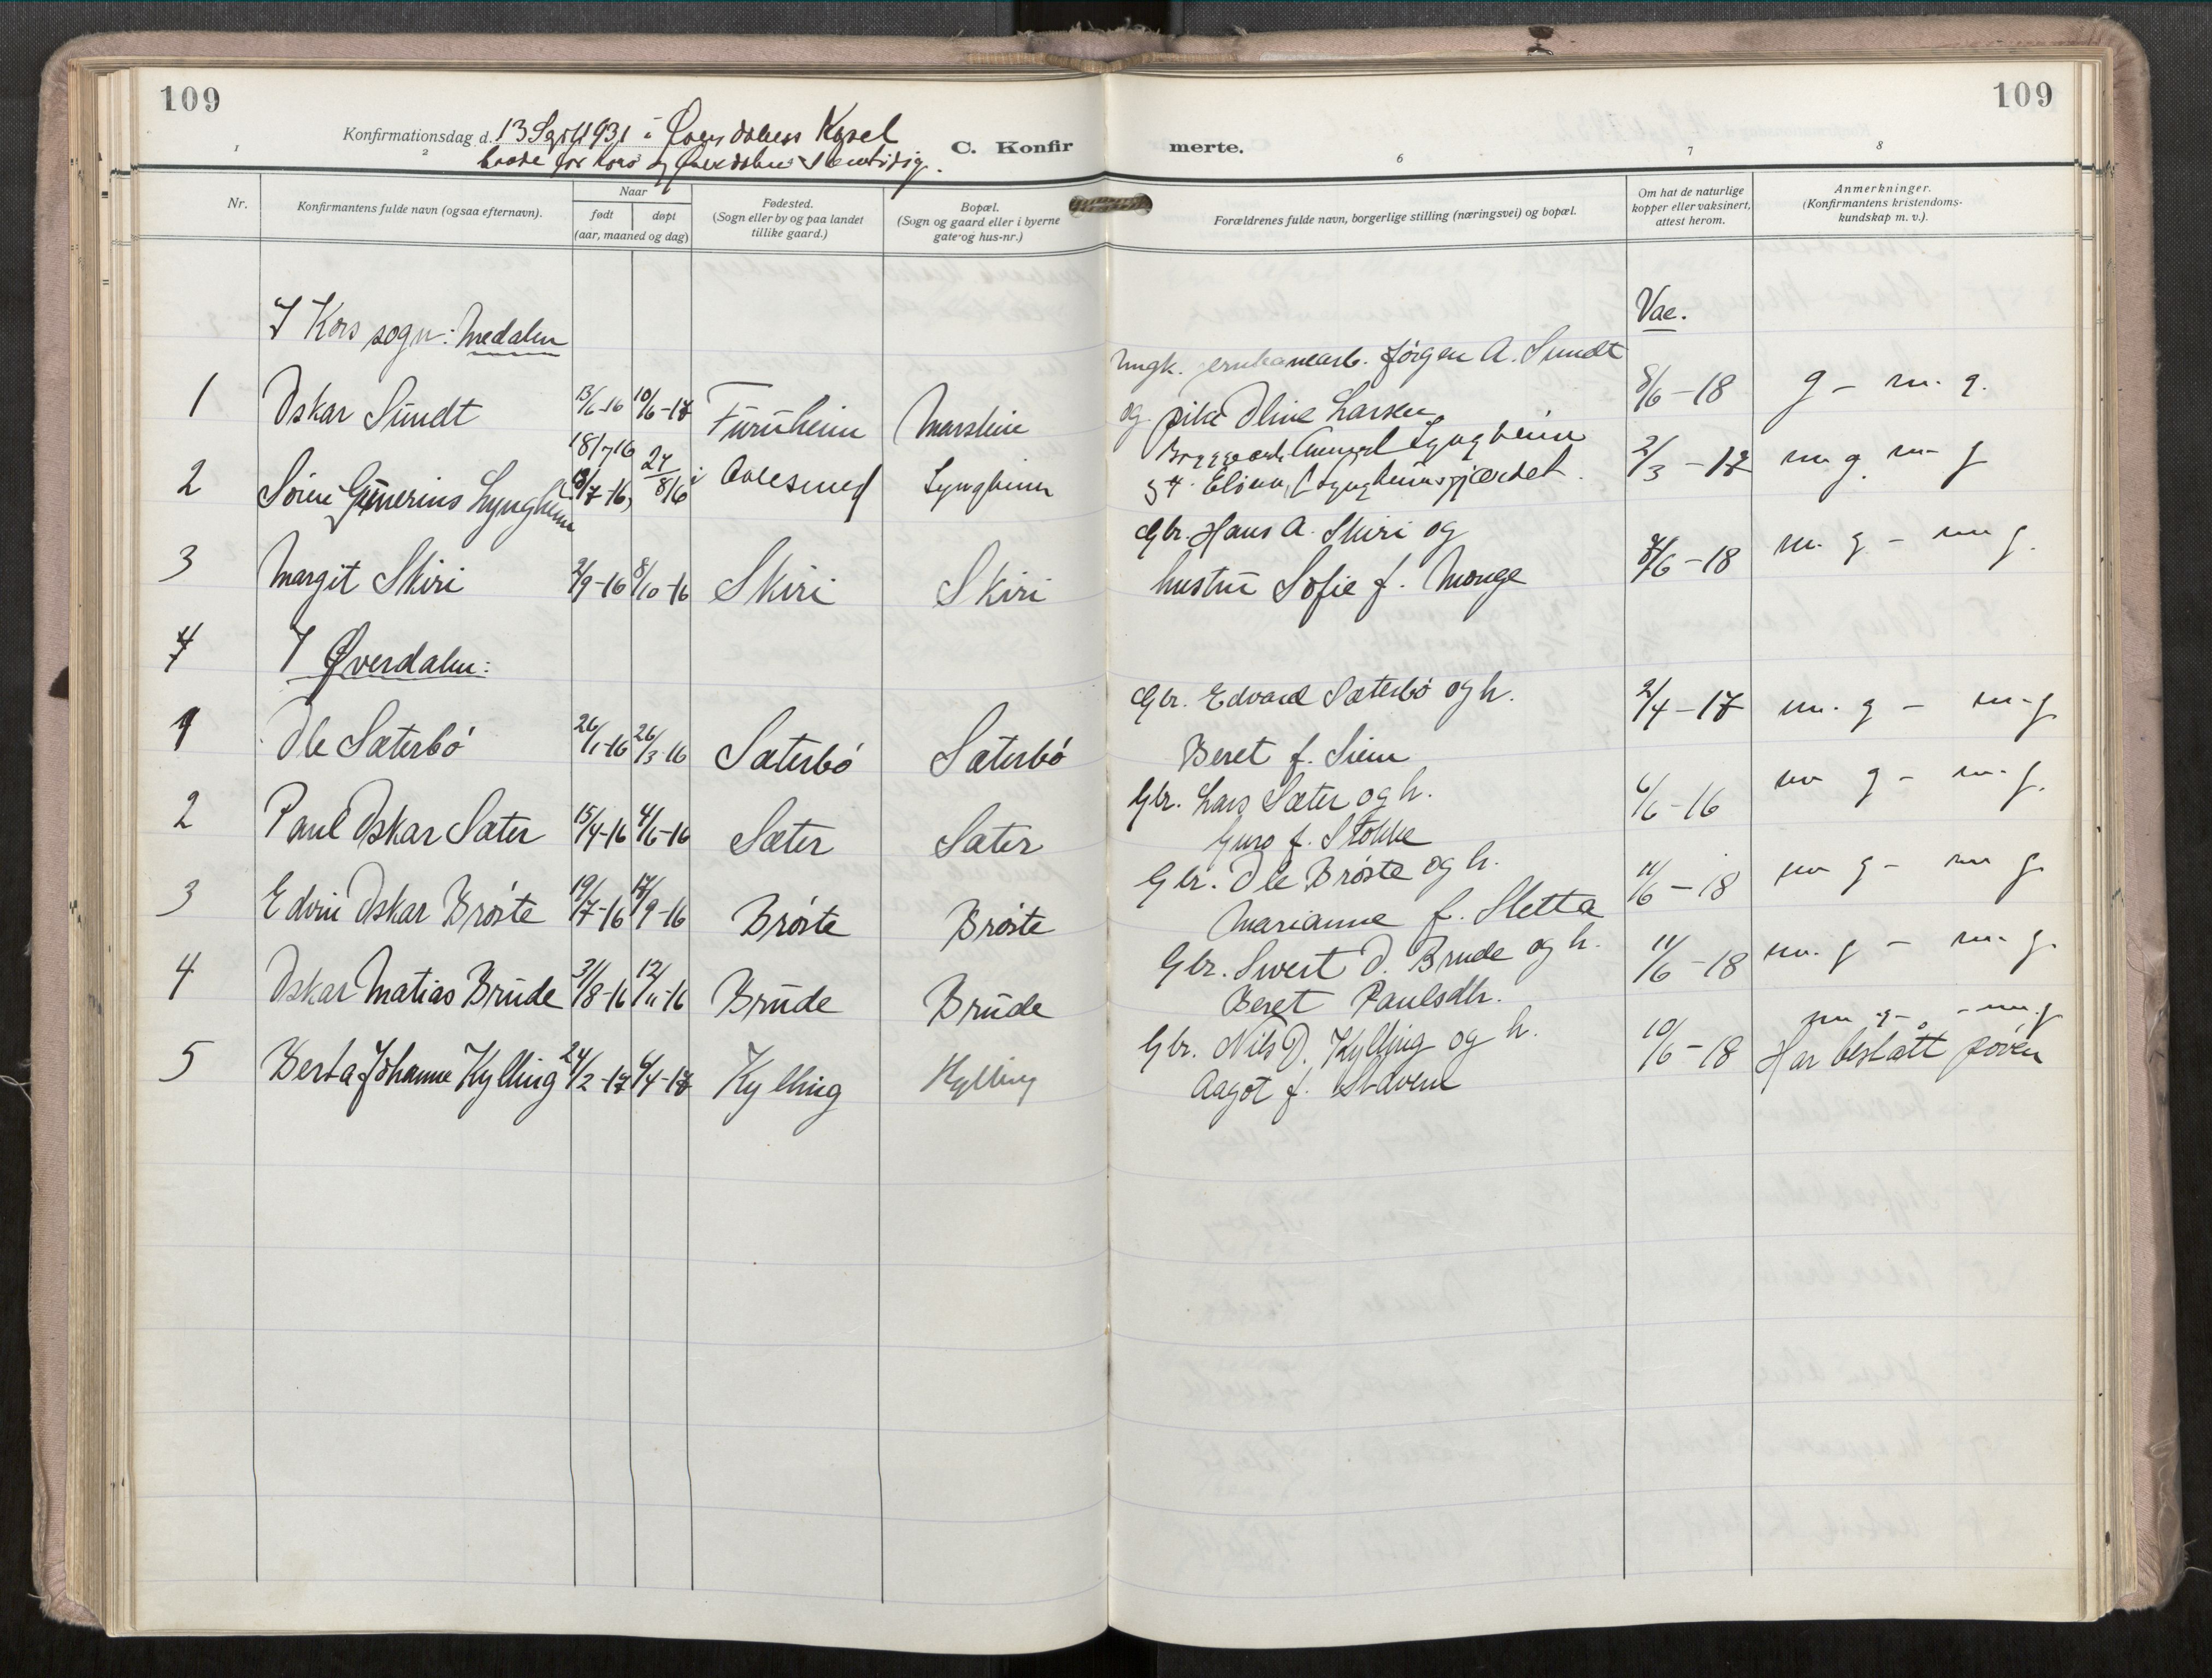 109
109
Konfirmationsdag d. 13 Sept 1931 i Øverdalens Kapel
baade for Kors og Øverdalen samtidig.
C. Konfir
merte.
1 2 6 7 8
Nr.
Konfirmantens fulde navn (ogsaa efternavn).
Naar
født døpt
(aar, maaned og dag)
Fødested.
(Sogn eller by og paa landet
tillike gaard.)
Bopæl.
(Sogn og gaard eller i byerne
gate og hus-nr.)
Forældrenes fulde navn, borgerlige stilling (næringsvei) og bopæl.
Om hat de naturlige
kopper eller vaksinert,
attest herom.
Anmerkninger.
(Konfirmantens kristendoms-
kundskap m. v.).
I Kors sogn: Medalen
Vac.
Ungk. jernbanearb. Jørgen A. Sundt
1 Oskar Sundt 13/6-16 10/6-17 Furuheim Marstein og pike Oline Larsen 8/6-18 g - m. g.
18/7 16
2 Søren Gunerius Lyngheim 18/7-16 27/8 16 i Aalesund Lyngheim Lyngheim 2/3-17 m g m g
3 Margit Skiri 2/9-16 8/10-16 Skiri Skiri
Gbr. Hans A. Skiri og
hustru Sofie f. Monge 8/6-18 m. g - m g.
4 I Øverdalen:
1 Ole Sæterbø 26/1-16 26/3-16 Sæterbø Sæterbø
Gbr. Edvard Sæterbø og h.
Beret f. Siem 2/4-17 m. g - m. g
2 Paul Oskar Sæter 15/4-16 4/6-16 Sæter Sæter
Gbr. Lars Sæter og h.
Guro f. Stokke 6/6-16 m g - m. g.
3 Edvin Oskar Brøste 19/7-16 17/9-16 Brøste Brøste
Gbr. Ole Brøste og h.
Marianne f. Sletta 11/6-18 m g - m g.
4 Oskar Matias Brude 31/8-16 12/11-16 Brude Brude
Gbr. Sivert O. Brude og h.
Beret Paulsdtr. 11/6-18 m. g - m. g.
5 Berta Johanne Kylling 24/2-17 6/4-17 Kylling Kylling
Gbr. Nils O. Kylling og h.
Aagot f. Stavem 10/6-18 m g - m. g
Har bestått prøven